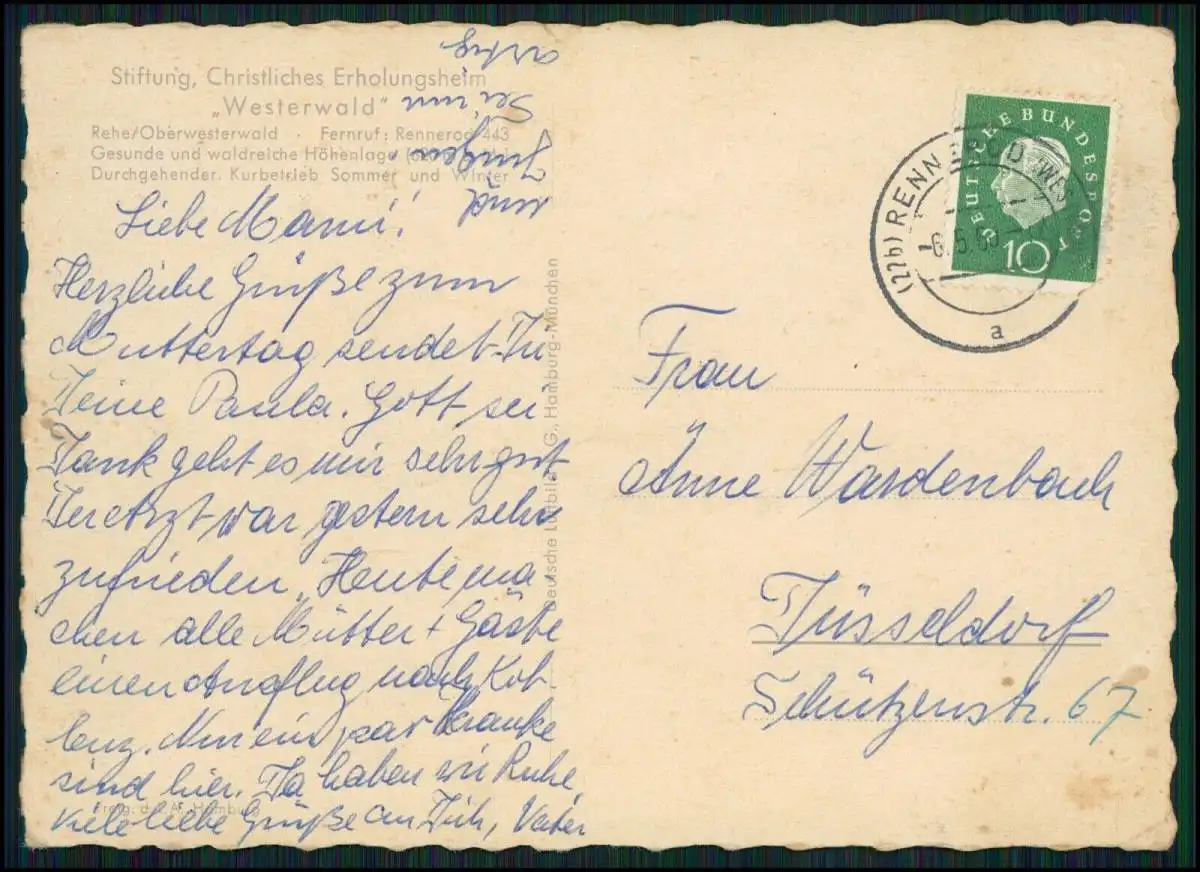 Stiftung, Christliches Erholungsheim
„Westerwald"
Rehe/Oberwesterwald · Fernruf: Rennerod 443
Gesunde und waldreiche Höhenlage
Durchgehender Kurbetrieb Sommer und Winter
Liebe Mami!
Herzliche Grüße zum
Muttertag sendet Dir
Deine Paula. Gott sei
Dank geht es mir sehr gut
Der Arzt war gestern sehr
zufrieden. Heute ma-
chen alle Mütter + Gäste
einen Ausflug nach Kob-
lenz. Nur ein paar Kranke
sind hier. Da haben wir Ruhe.
Viele liebe Grüße an Dich, Vater
und
Jürgen,
sei nur
artig.
Deutsche Luftbild K.G., Hamburg-München
Freig. d. L.A. Hamburg
DEUTSCHE BUNDESPOST
10
(22b) RENNEROD (WES
6.5.60
a
Frau
Änne Wardenbach
Düsseldorf
Schützenstr. 67